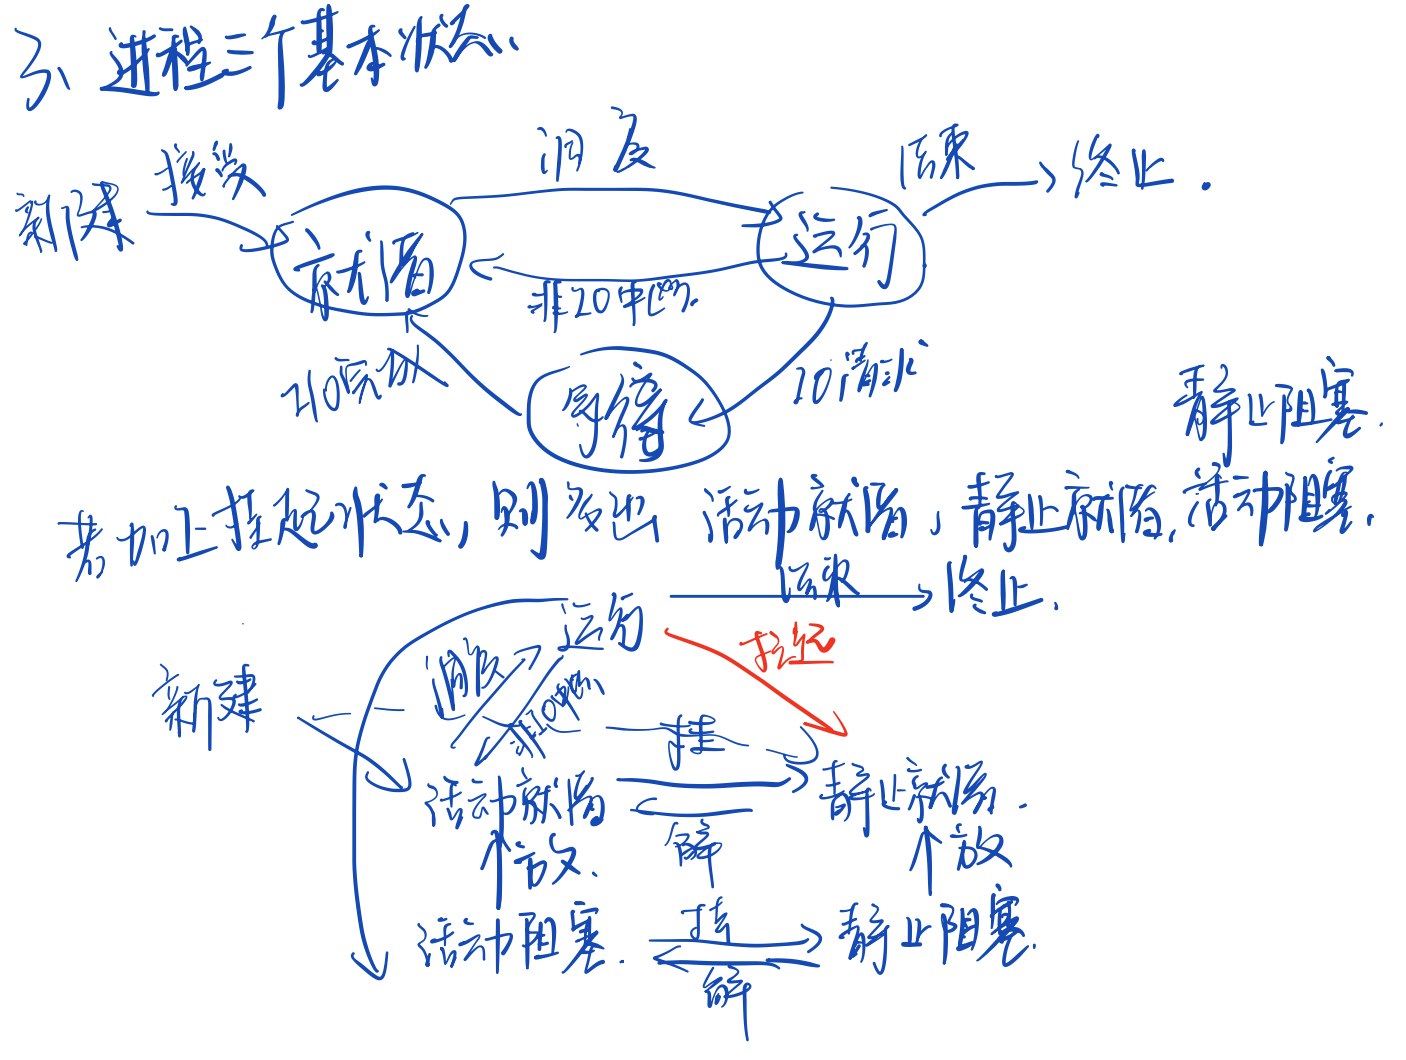 3、进程三个基本状态、
新建 接受 调度 结束 终止.
就绪 运行
非IO中断.
IO完成 等待 IO请求
静止阻塞.
若加上挂起状态,则多出 活动就绪、静止就绪,活动阻塞.
运行 结束 终止.
挂起
新建 调度 非IO中断、
挂
活动就绪 静止就绪.
解
放. 放
活动阻塞. 挂 静止阻塞.
解